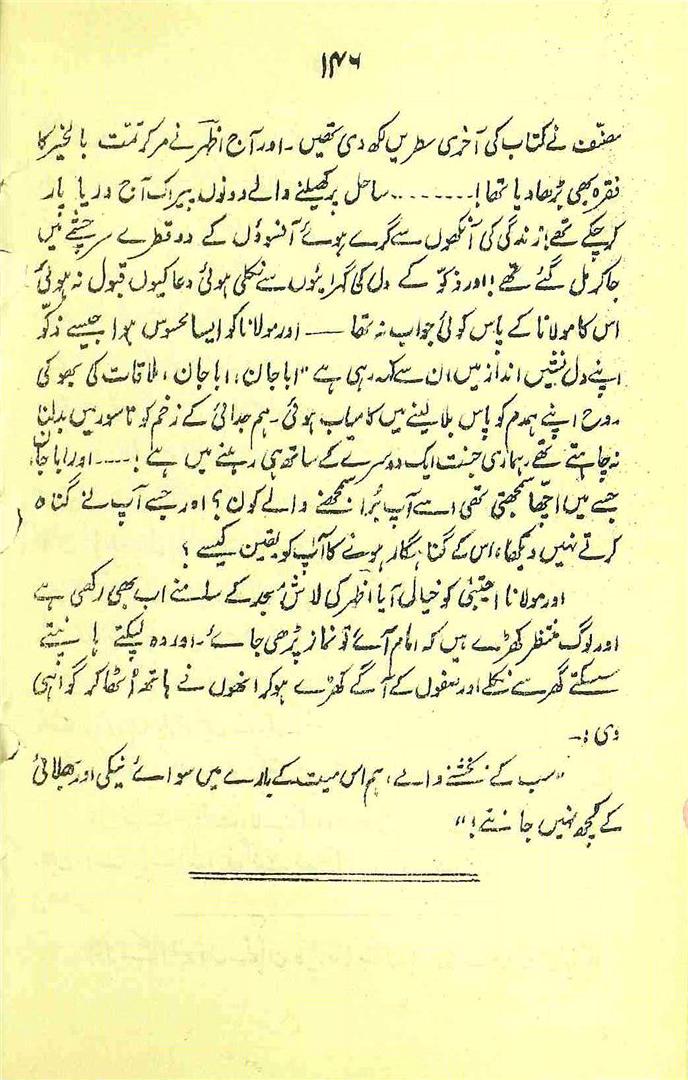 ۱۴۶
مصنّف نے کتاب کی آخری سطریں لکھ دی تھیں۔ اور آج اظہر نے مرکر تمّت بالخیر کا
فقرہ بھی بڑھا دیا تھا! ........ ساحل پر کھیلنے والے دونوں پیراک آج دریا پار
کر چکے تھے! زندگی کی آنکھوں سے گرے ہوئے آنسوؤں کے دو قطرے سرچشمے میں
جاکر مل گئے تھے! اور ذکوّ کے دل کی گہرائیوں سے نکلی ہوئی دعا کیوں قبول نہ ہوئی
اس کا مولانا کے پاس کوئی جواب نہ تھا —— اور مولانا کو ایسا محسوس ہوا جیسے ذکوّ
اپنے دل نشیں انداز میں ان سے کہہ رہی ہے "ابا جان، ابا جان، ملاقات کی بھوکی
روح اپنے ہمدم کو پاس بلا لینے میں کامیاب ہوئی۔ ہم جدائی کے زخم کو ناسور میں بدلنا
نہ چاہتے تھے، ہماری جنت ایک دوسرے کے ساتھ ہی رہنے میں ہے! .... اور ابا جان
جسے میں اچھا سمجھتی تھی اسے آپ بُرا سمجھنے والے کون؟ اور جسے آپ نے گناہ
کرتے نہیں دیکھا، اس کے گناہگار ہونے کا آپ کو یقین کیسے؟
اور مولانا اجتبیٰ کو خیال آیا اظہر کی لاش مسجد کے سامنے اب بھی رکھی ہے
اور لوگ منتظر کھڑے ہیں کہ امام آئے تو نماز پڑھی جائے۔ اور وہ لپکتے ہانپتے
سسکتے گھر سے نکلے اور صفوں کے آگے کھڑے ہوکر انھوں نے ہاتھ اٹھا کر گواہی
دی:۔
"سب کے بخشنے والے، ہم اس میت کے بارے میں سوائے نیکی اور بھلائی
کے کچھ نہیں جانتے!"